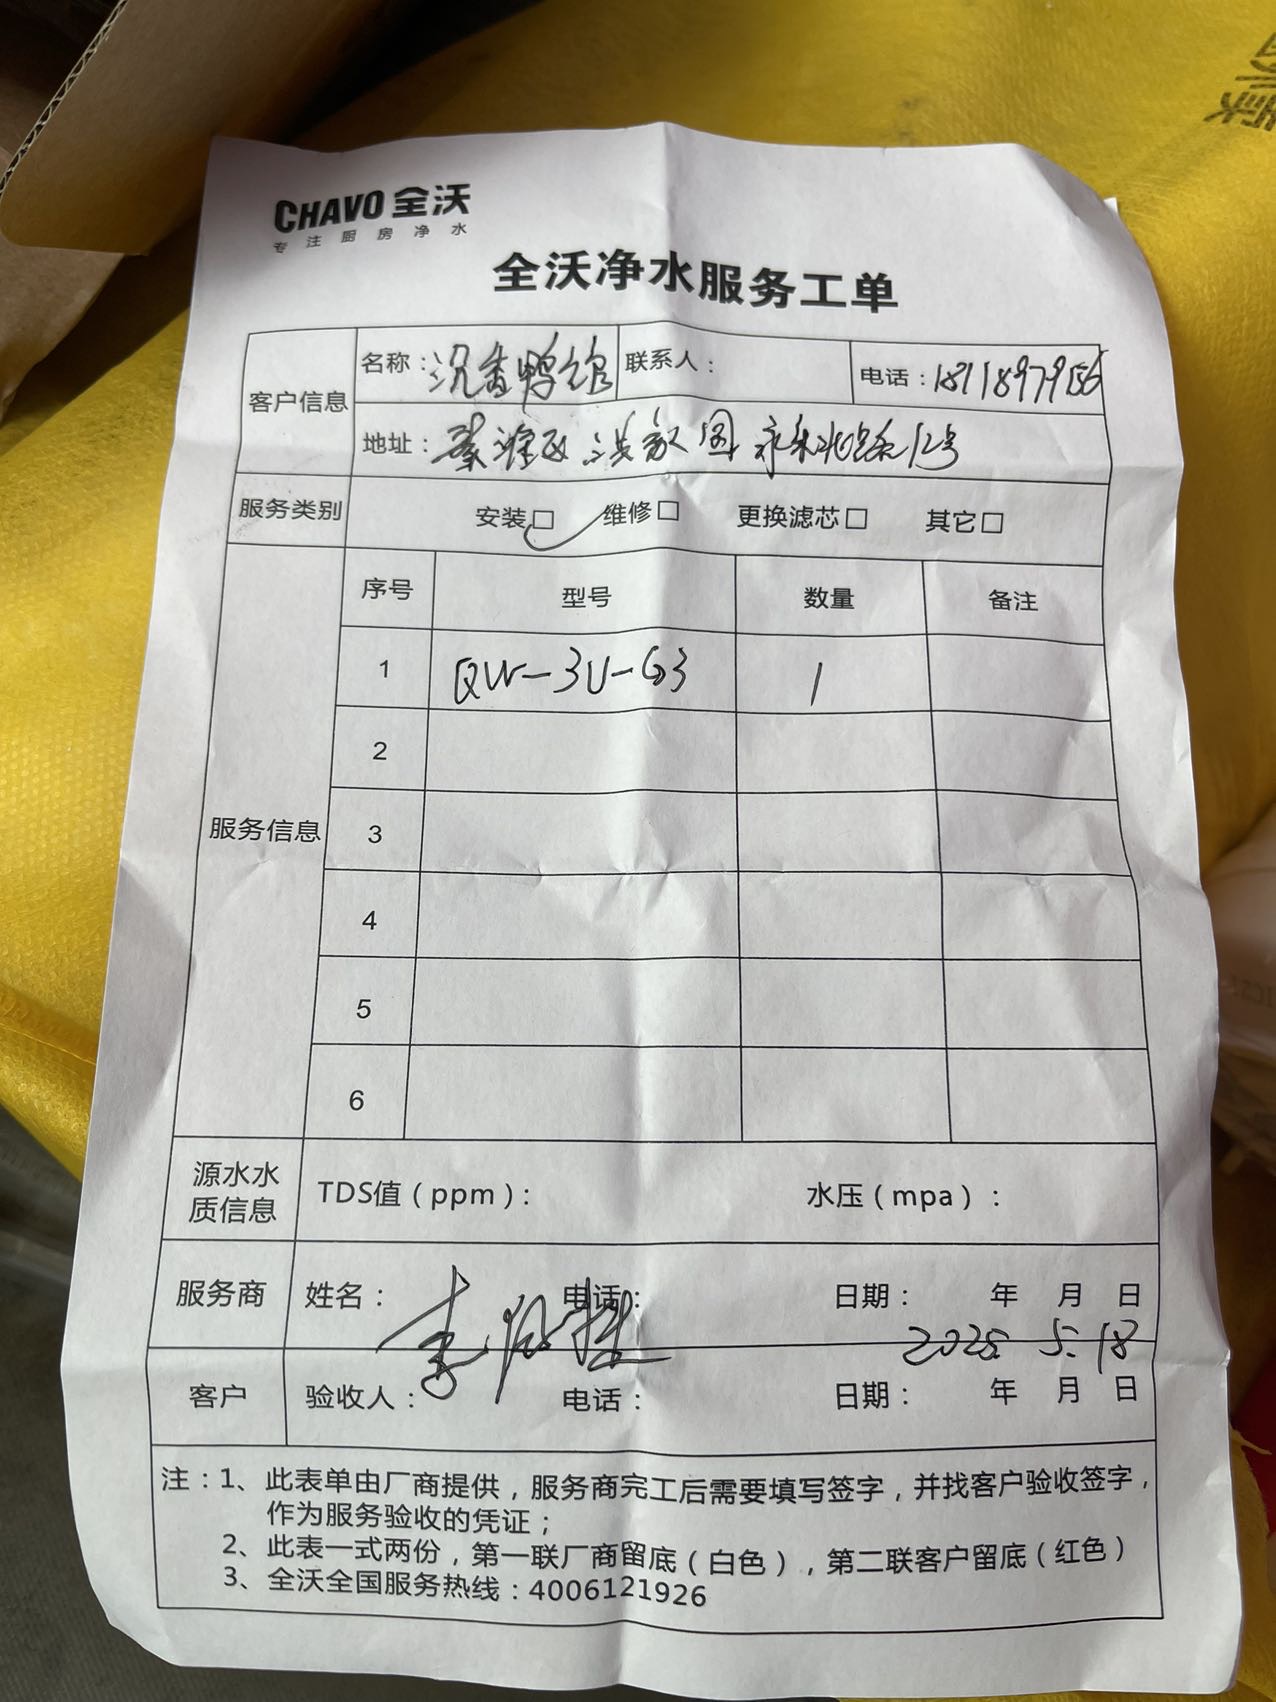 CHAVO 全沃
专注厨房净水
全沃净水服务工单
客户信息
名称：沉香鸭馆 联系人： 电话：18118979156
地址： 永和北路12号
服务类别 安装□ 维修□ 更换滤芯□ 其它□
服务信息
序号 型号 数量 备注
1 QW-3U-G3 1
2
3
4
5
6
源水水质信息
TDS值（ppm）： 水压（mpa）：
服务商 姓名： 电话： 日期： 年 月 日
李
2025 5.18
客户 验收人： 电话： 日期： 年 月 日
注：1、此表单由厂商提供，服务商完工后需要填写签字，并找客户验收签字，
作为服务验收的凭证；
2、此表一式两份，第一联厂商留底（白色），第二联客户留底（红色）
3、全沃全国服务热线：4006121926